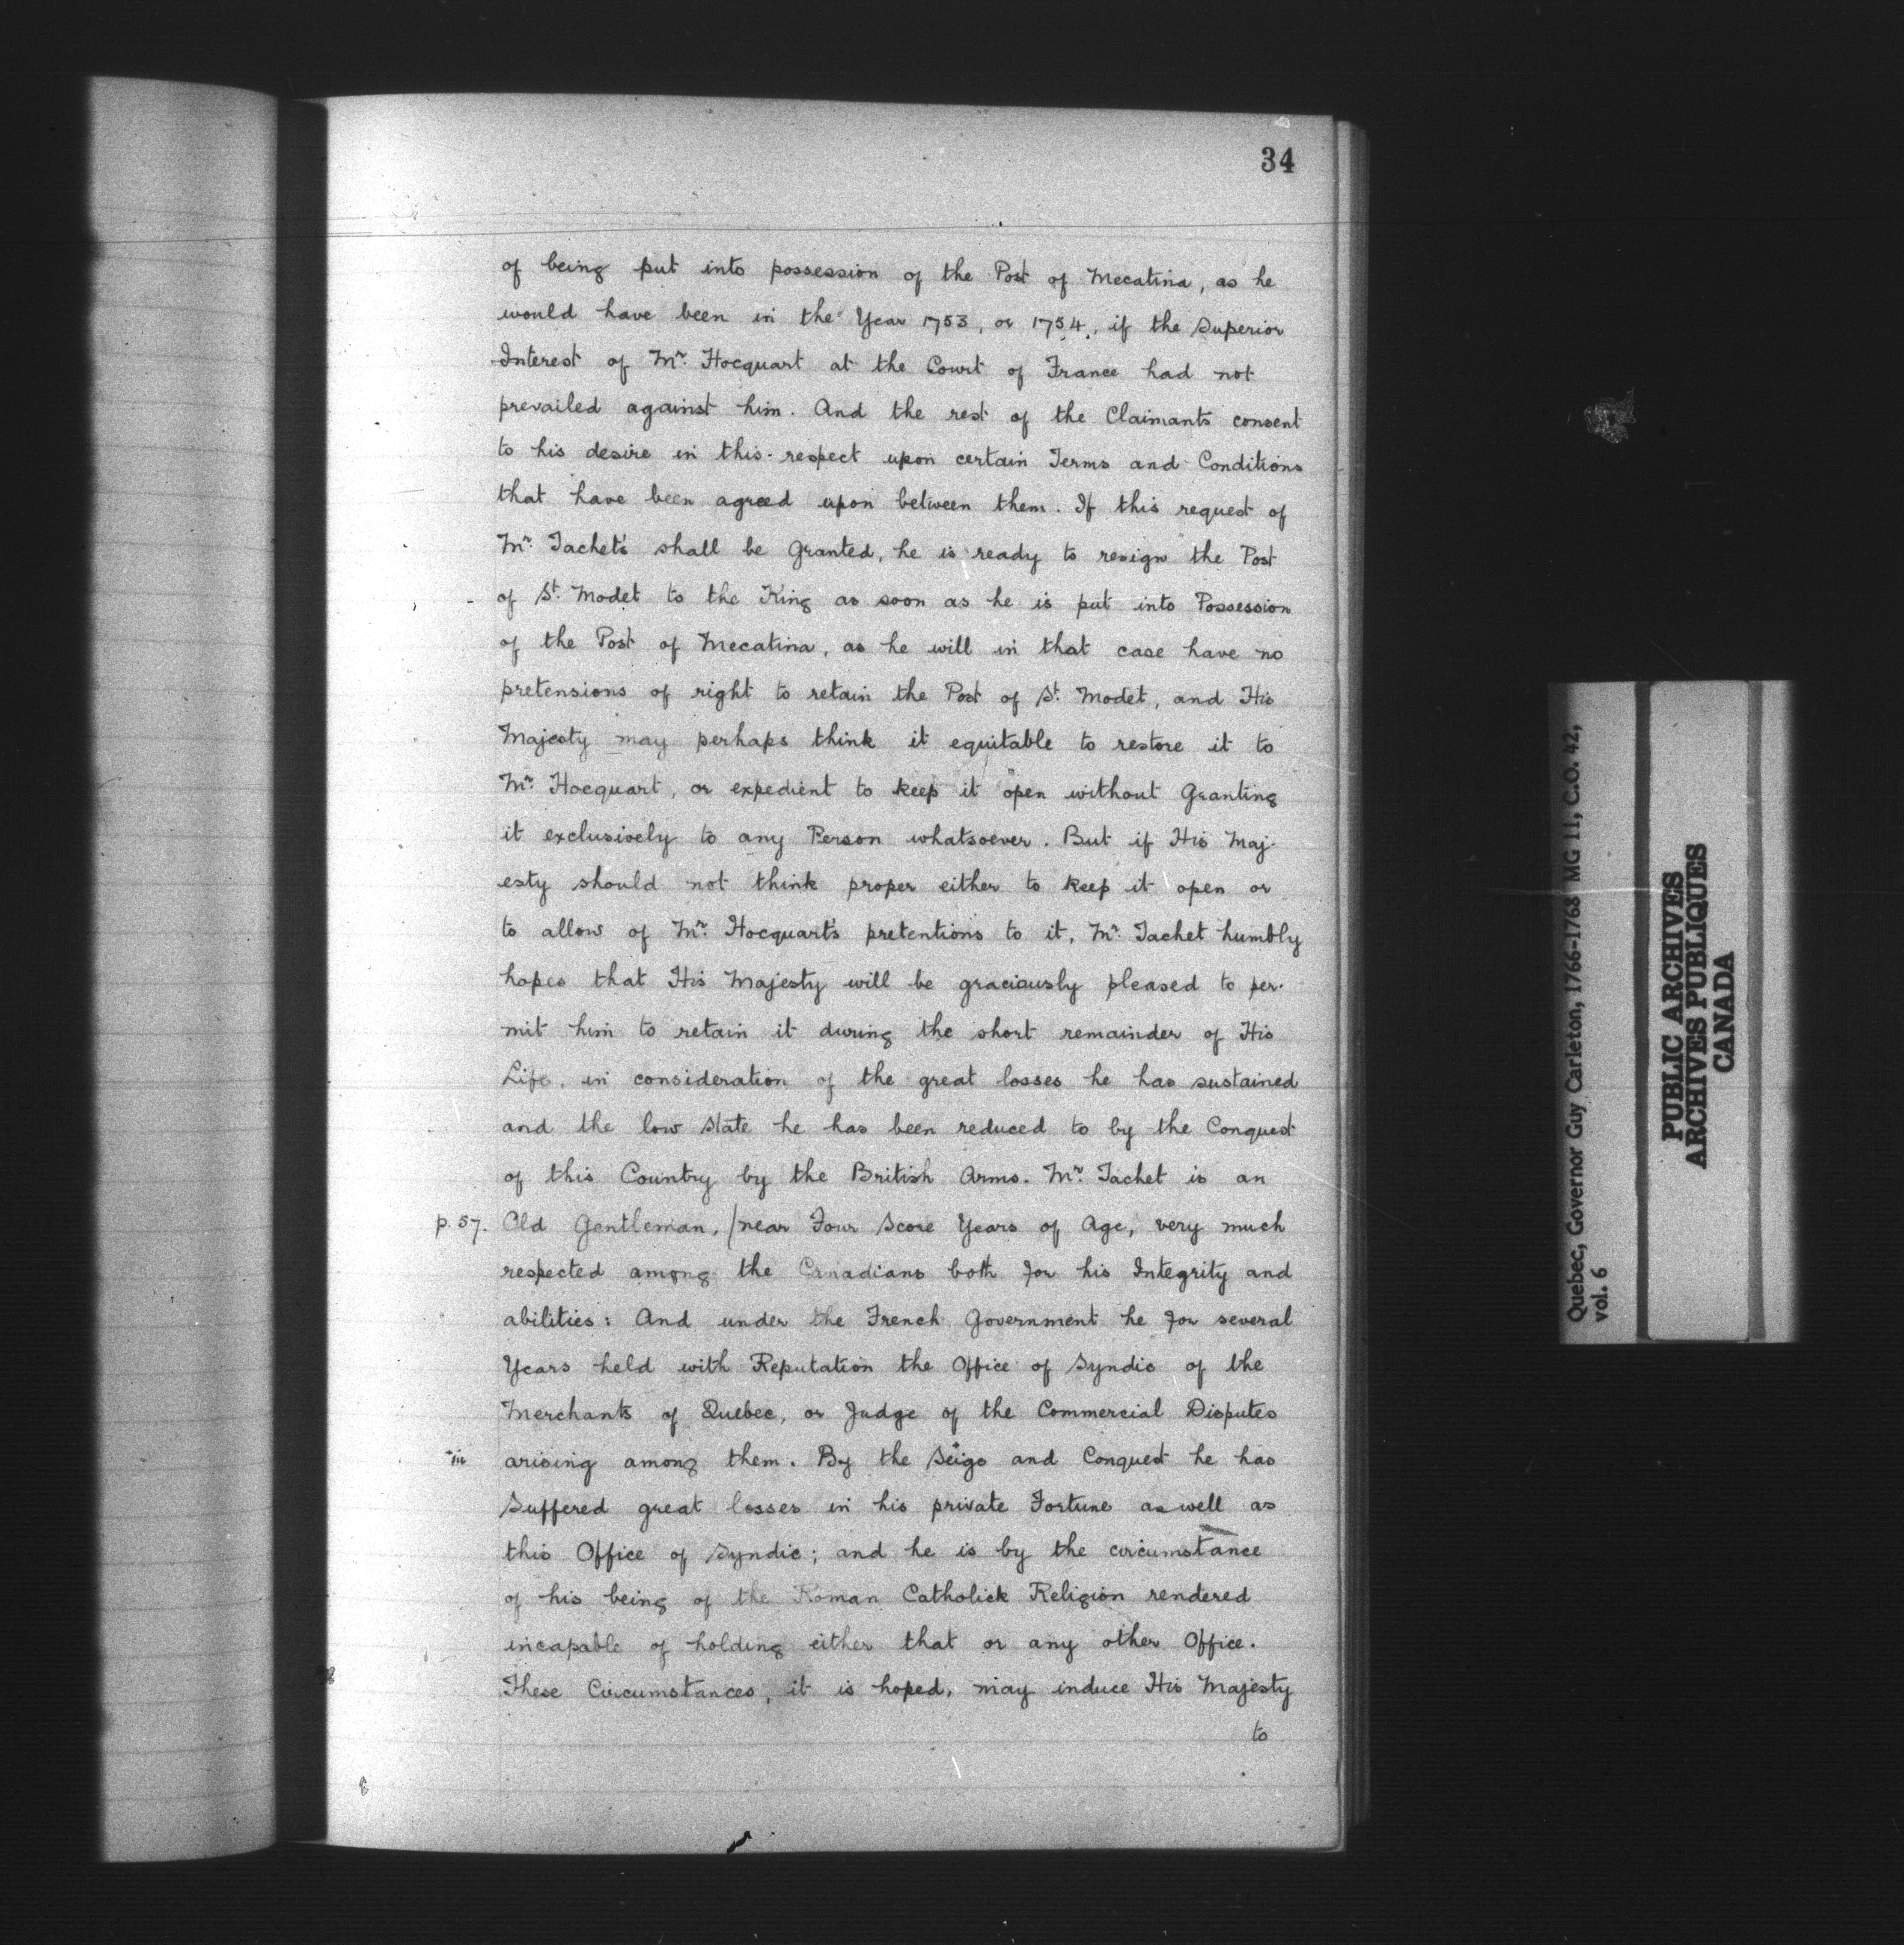 34
of being put into possession of the Post of Mecatina, as he
would have been in the Year 1753, or 1754, if the Superior
Interest of Mr. Hocquart at the Court of France had not
prevailed against him. And the rest of the Claimants consent
to his desire in this respect upon certain Terms and Conditions
that have been agreed upon between them. If this request of
Mr. Tachet's shall be Granted, he is ready to resign the Post
of St. Modet to the King as soon as he is put into Possession
of the Post of Mecatina, as he will in that case have no
pretensions of right to retain the Post of St. Modet, and His
Majesty may perhaps think it equitable to restore it to
Mr. Hocquart, or expedient to keep it open without Granting
it exclusively to any Person whatsoever. But if His Maj-
esty should not think proper either to keep it open or
to allow of Mr. Hocquart's pretentions to it, Mr. Tachet humbly
hopes that His Majesty will be graciously pleased to per-
mit him to retain it during the short remainder of His
Life, in consideration of the great losses he has sustained
and the low state he has been reduced to by the Conquest
of this Country by the British Arms. Mr. Tachet is an
p. 57. Old Gentleman, /near Four Score Years of Age, very much
respected among the Canadians both for his Integrity and
abilities: And under the French Government he for several
Years held with Reputation the Office of Syndic of the
Merchants of Quebec, or Judge of the Commercial Disputes
arising among them. By the Seige and Conquest he has
Suffered great losses in his private Fortune as well as
this Office of Syndic; and he is by the circumstance
of his being of the Roman Catholick Religion rendered
incapable of holding either that or any other Office.
These Circumstances, it is hoped, may induce His Majesty
to
Quebec, Governor Guy Carleton, 1766-1768 MG 11, C.O. 42,
vol. 6
PUBLIC ARCHIVES
ARCHIVES PUBLIQUES
CANADA